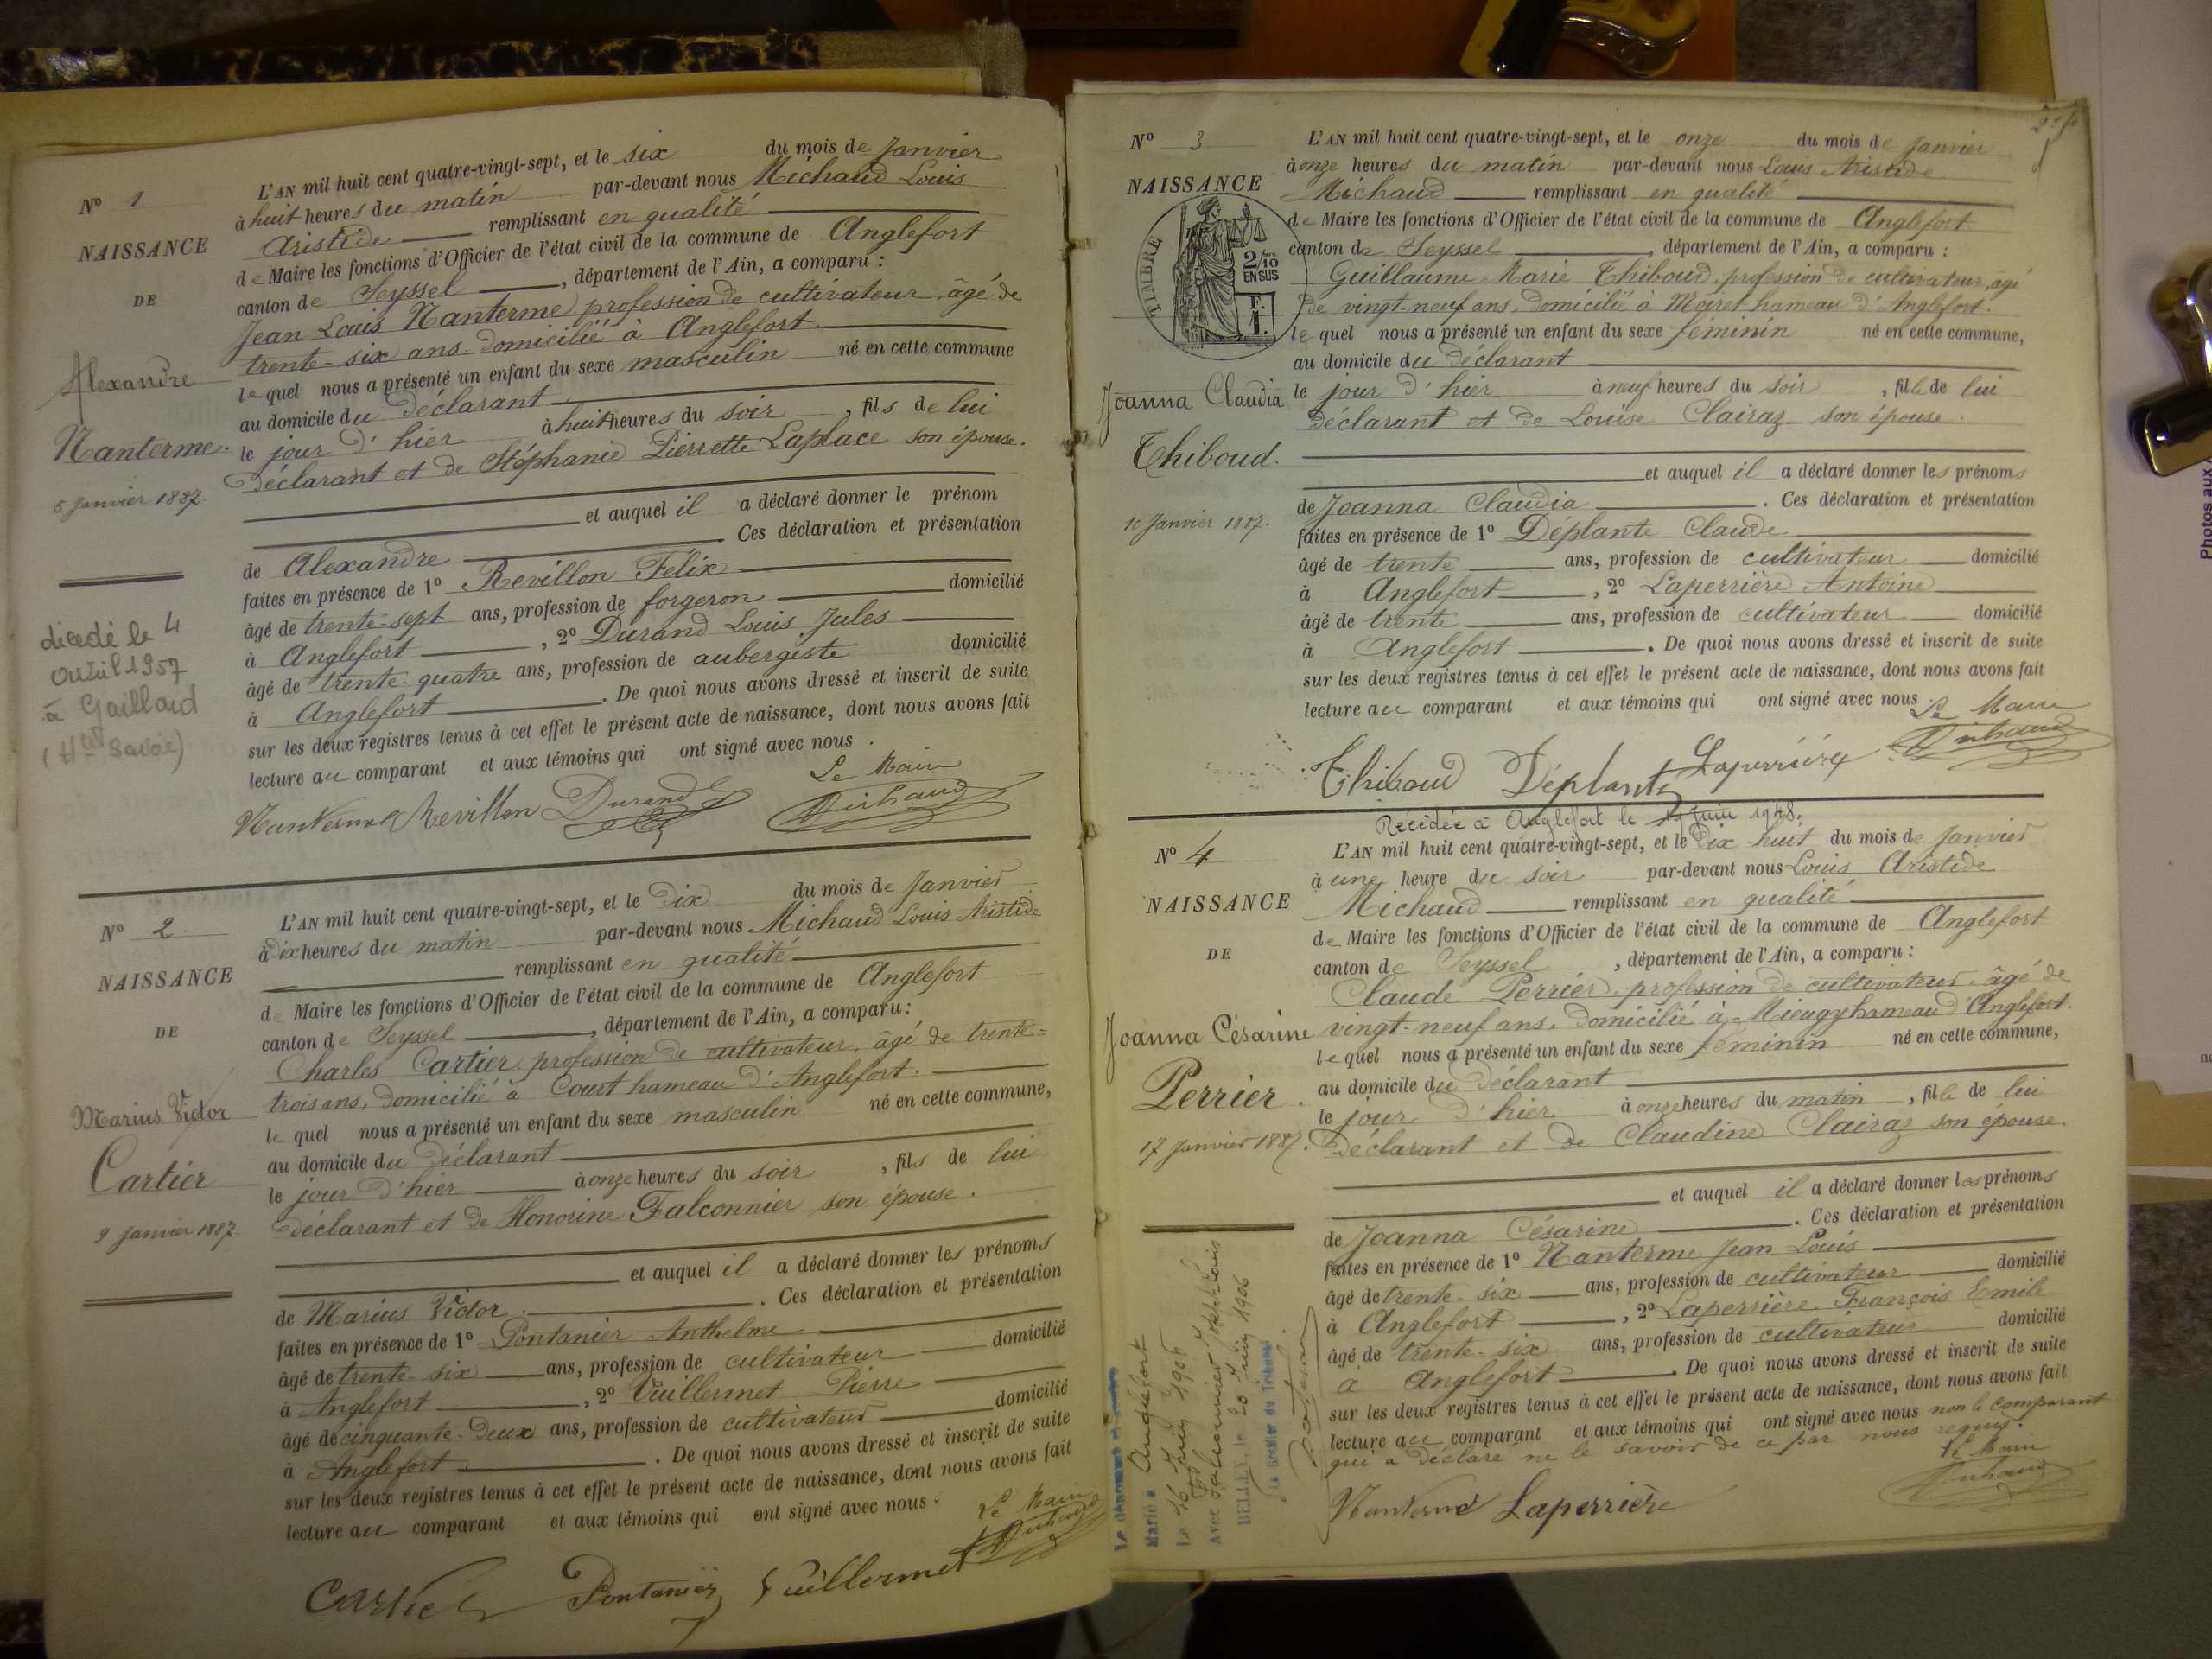 N° 1
NAISSANCE
DE
Alexandre
Nanterme.
5 Janvier 1887.
décédé le 4
1957
à Gaillard
(Hte Savoie)
L'AN mil huit cent quatre-vingt-sept, et le six du mois de Janvier
à huit heures du matin par-devant nous Michaud Louis
Aristide remplissant en qualité
de Maire les fonctions d'Officier de l'état civil de la commune de Anglefort
canton de Seyssel, département de l'Ain, a comparu :
Jean Louis Nanterme, profession de cultivateur, âgé de
trente-six ans. Domicilié à Anglefort.
lequel nous a présenté un enfant du sexe masculin né en cette commune
au domicile du déclarant
le jour d'hier à huit heures du soir, fils de lui
déclarant et de Stéphanie Pierrette Laplace son épouse.
et auquel il a déclaré donner le prénom
de Alexandre. Ces déclaration et présentation
faites en présence de 1° Revillon Felix
âgé de trente-sept ans, profession de forgeron domicilié
à Anglefort, 2° Durand Louis Jules
âgé de trente-quatre ans, profession de aubergiste domicilié
à Anglefort. De quoi nous avons dressé et inscrit de suite
sur les deux registres tenus à cet effet le présent acte de naissance, dont nous avons fait
lecture au comparant et aux témoins qui ont signé avec nous.
Le Maire
Nanterme Revillon Durand Michaud
N° 2.
NAISSANCE
DE
Marius Victor
Cartier
9 Janvier 1887.
L'AN mil huit cent quatre-vingt-sept, et le dix du mois de Janvier
à dix heures du matin par-devant nous Michaud Louis Aristide
remplissant en qualité
de Maire les fonctions d'Officier de l'état civil de la commune de Anglefort
canton de Seyssel, département de l'Ain, a comparu :
Charles Cartier, profession de cultivateur, âgé de trente-
trois ans, domicilié à Court hameau d'Anglefort.
lequel nous a présenté un enfant du sexe masculin né en cette commune,
au domicile du déclarant
le jour d'hier à onze heures du soir, fils de lui
déclarant et de Honorine Falconnier son épouse.
et auquel il a déclaré donner les prénoms
de Marius Victor. Ces déclaration et présentation
faites en présence de 1° Pontanier Anthelme
âgé de trente-six ans, profession de cultivateur domicilié
à Anglefort, 2° Vuillermet Pierre
âgé de cinquante-deux ans, profession de cultivateur domicilié
à Anglefort. De quoi nous avons dressé et inscrit de suite
sur les deux registres tenus à cet effet le présent acte de naissance, dont nous avons fait
lecture au comparant et aux témoins qui ont signé avec nous.
Le Maire
Michaud
Cartier Pontanier Vuillermet
N° 3
NAISSANCE
TIMBRE
2/10
EN SUS
F.
1.
Joanna Claudia
Thiboud.
10 Janvier 1887.
L'AN mil huit cent quatre-vingt-sept, et le onze du mois de Janvier
à onze heures du matin par-devant nous Louis Aristide
Michaud remplissant en qualité
de Maire les fonctions d'Officier de l'état civil de la commune de Anglefort
canton de Seyssel, département de l'Ain, a comparu :
Guillaume Marie Thiboud, profession de cultivateur, âgé
de vingt-neuf ans, domicilié à Moiret hameau d'Anglefort.
lequel nous a présenté un enfant du sexe féminin né en cette commune,
au domicile du déclarant
le jour d'hier à neuf heures du soir, fille de lui
déclarant et de Louise Clairaz son épouse.
et auquel il a déclaré donner les prénoms
de Joanna Claudia. Ces déclaration et présentation
faites en présence de 1° Déplante Claude
âgé de trente ans, profession de cultivateur domicilié
à Anglefort, 2° Laperrière Antoine
âgé de trente ans, profession de cultivateur domicilié
à Anglefort. De quoi nous avons dressé et inscrit de suite
sur les deux registres tenus à cet effet le présent acte de naissance, dont nous avons fait
lecture au comparant et aux témoins qui ont signé avec nous.
Le Maire
Thiboud Déplante Laperrière Michaud
Décédée à Anglefort le 19 Juin 1948.
N° 4
NAISSANCE
DE
Joanna Césarine
Perrier.
17 Janvier 1887.
L'AN mil huit cent quatre-vingt-sept, et le dix huit du mois de Janvier
à une heure du soir par-devant nous Louis Aristide
Michaud remplissant en qualité
de Maire les fonctions d'Officier de l'état civil de la commune de Anglefort
canton de Seyssel, département de l'Ain, a comparu :
Claude Perrier, profession de cultivateur, âgé de
vingt-neuf ans, domicilié à Mieugy hameau d'Anglefort.
lequel nous a présenté un enfant du sexe féminin né en cette commune,
au domicile du déclarant
le jour d'hier à onze heures du matin, fille de lui
déclarant et de Claudine Clairaz son épouse.
et auquel il a déclaré donner les prénoms
de Joanna Césarine. Ces déclaration et présentation
faites en présence de 1° Nanterme Jean Louis
âgé de trente-six ans, profession de cultivateur domicilié
à Anglefort, 2° Laperrière François Emile
âgé de trente-six ans, profession de cultivateur domicilié
à Anglefort. De quoi nous avons dressé et inscrit de suite
sur les deux registres tenus à cet effet le présent acte de naissance, dont nous avons fait
lecture au comparant et aux témoins qui ont signé avec nous non le comparant
qui a déclaré ne le savoir de ce par nous requis.
Le Maire
Michaud
Nanterme Laperrière
Marié à Anglefort
Le 16 Juin 1906
Avec
BELLEY, le 20 Juin 1906
Le Greffier du Tribunal
Photos aux